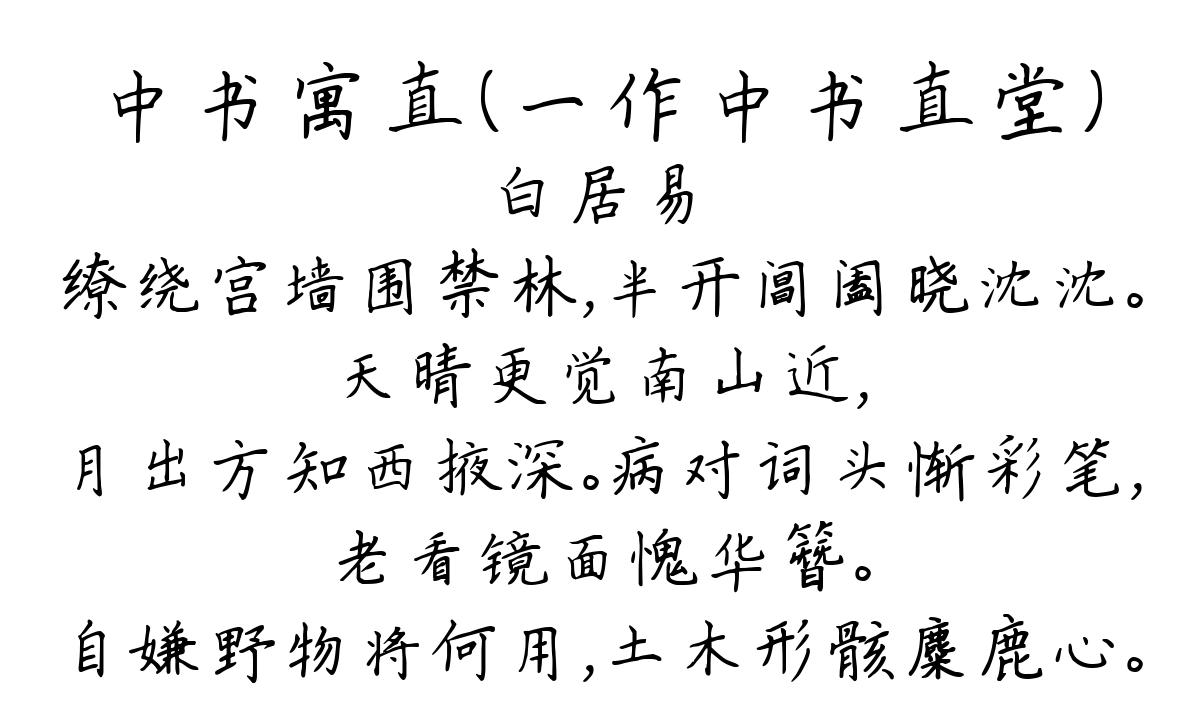 中书寓直(一作中书直堂)
白居易
缭绕宫墙围禁林,半开阊阖晓沈沈。
天晴更觉南山近,
月出方知西掖深。病对词头惭彩笔,
老看镜面愧华簪。
自嫌野物将何用,土木形骸麋鹿心。